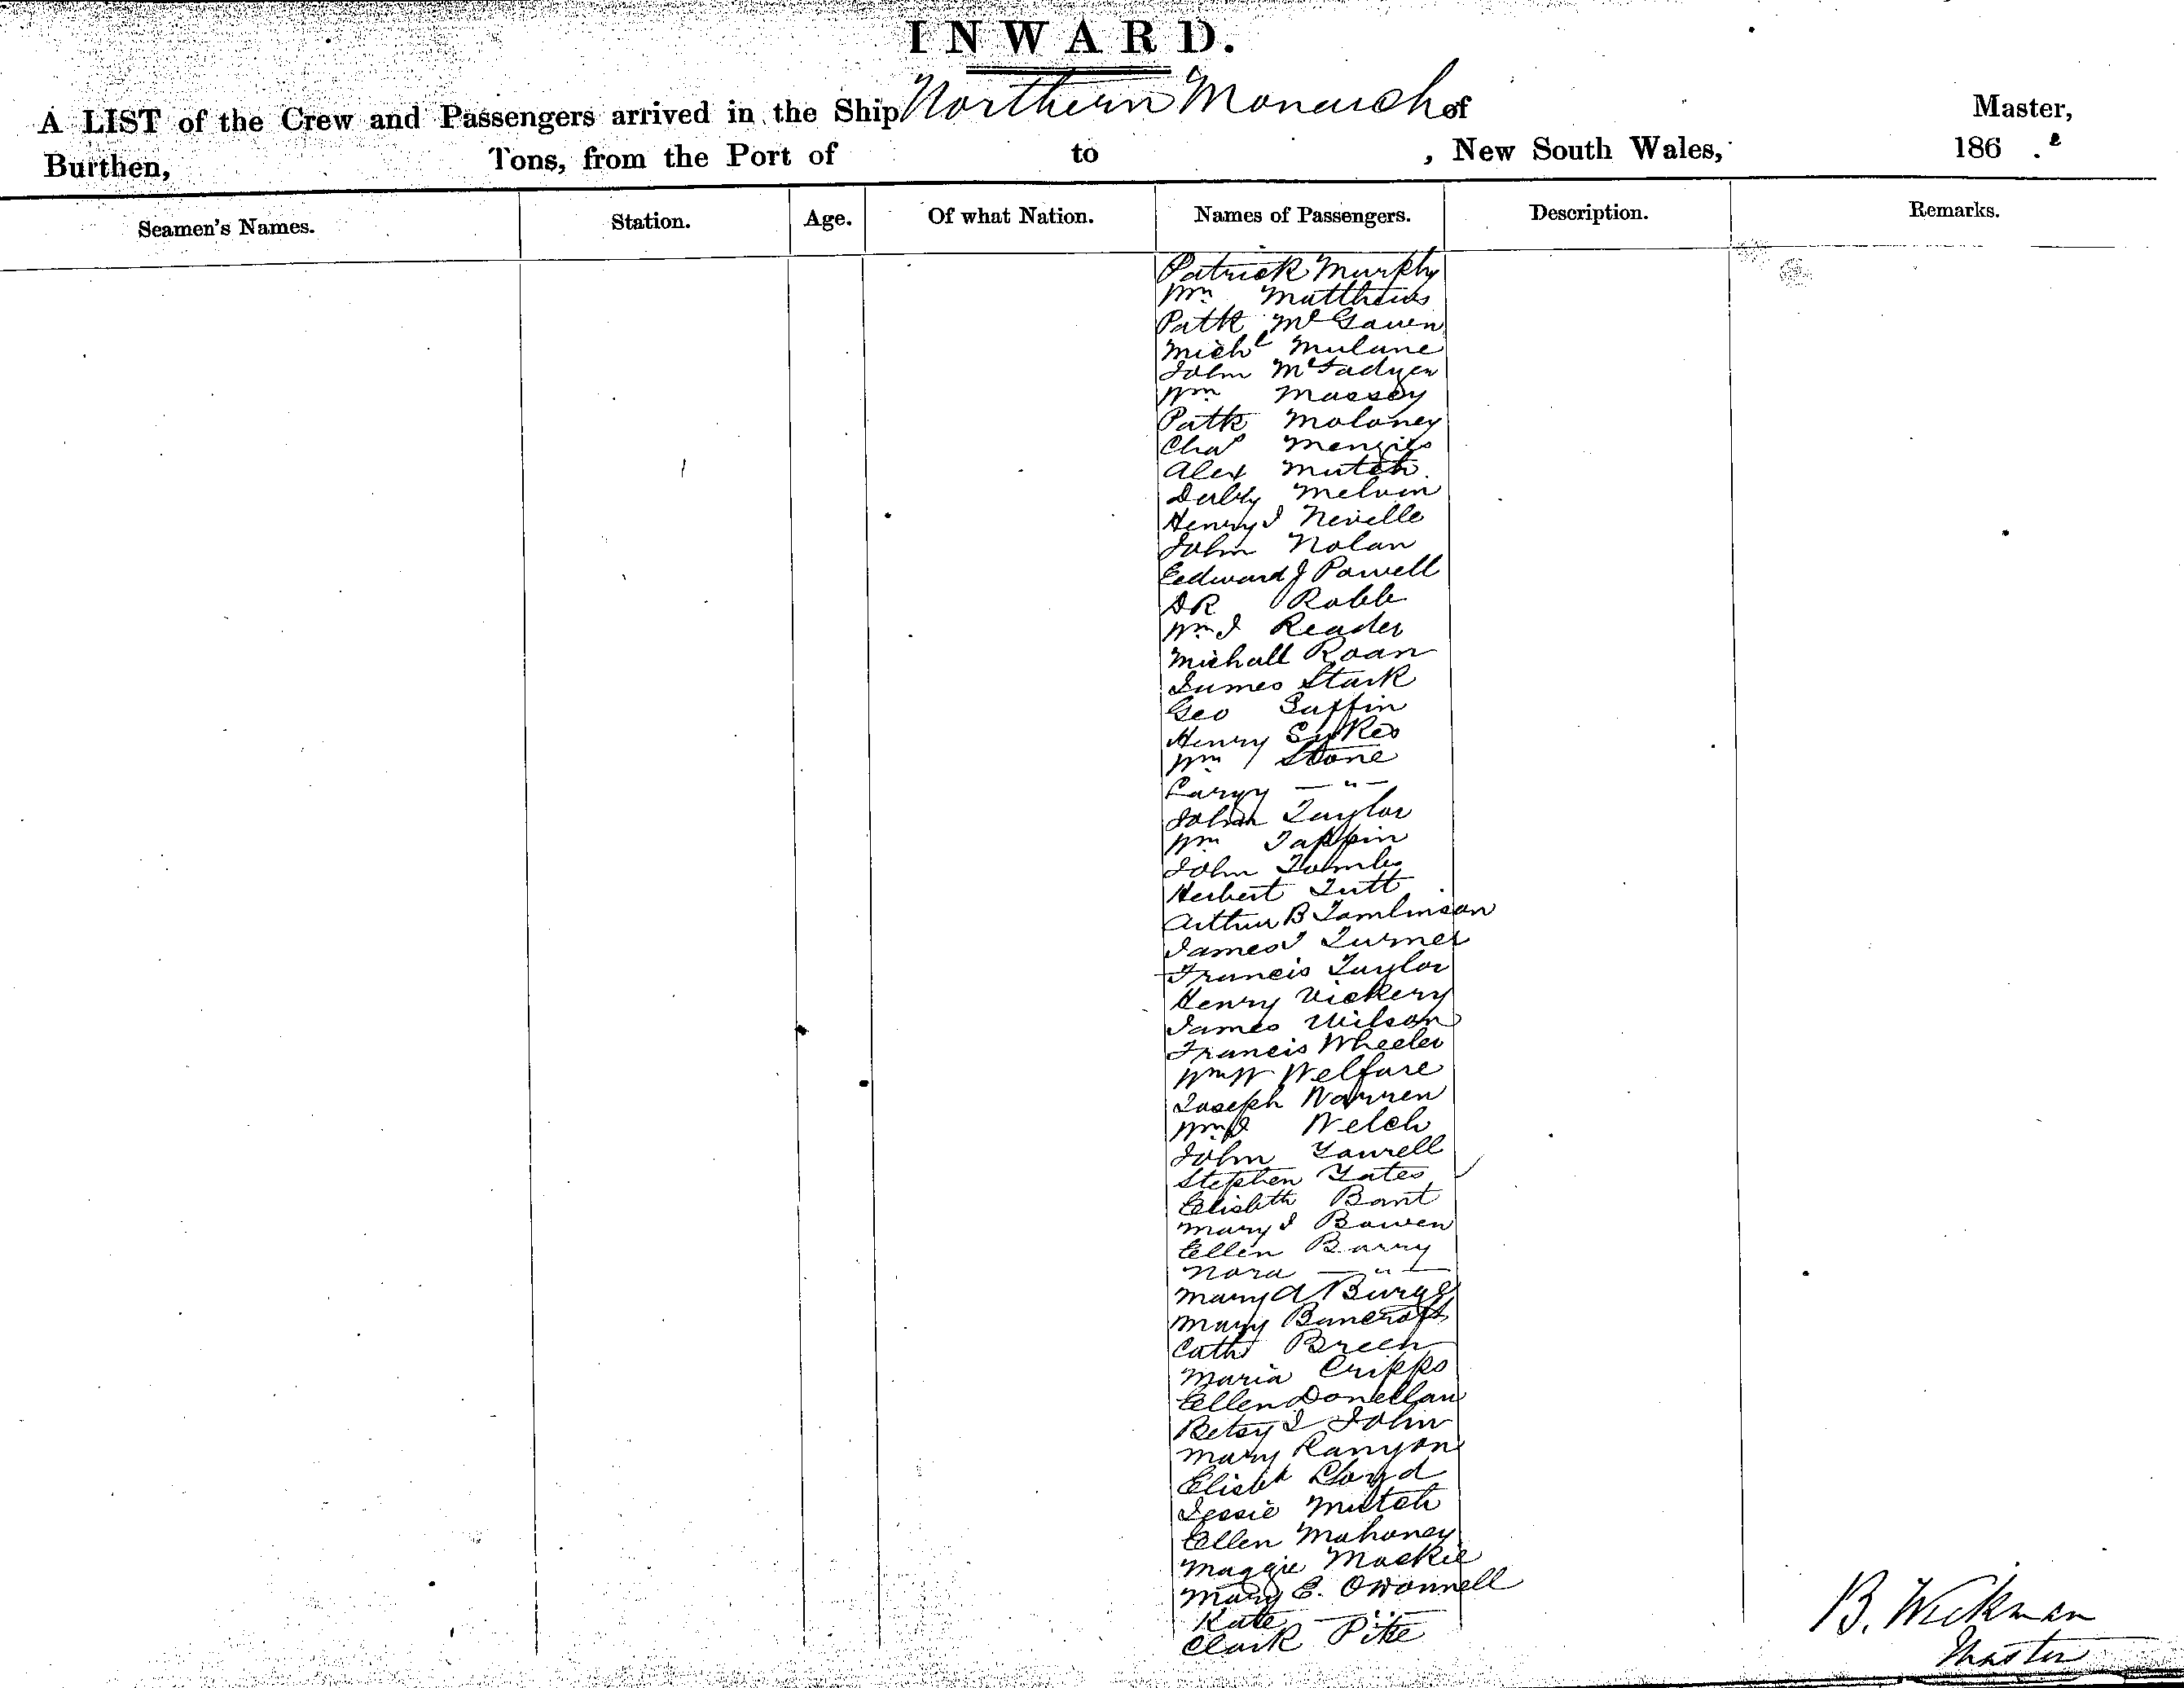 INWARD.
A LIST of the Crew and Passengers arrived in the Ship Northern Monarch of Master,
Burthen, Tons, from the Port of to , New South Wales, 186 .
Seamen's Names. Station. Age. Of what Nation. Names of Passengers. Description. Remarks.
Patrick Murphy
Wm Matthews
Patk McGauen
Michl Mulane
John McFadyen
Wm Massey
Patk Moloney
Chas Menzies
Alex Mutch
Derby Melvin
Henry J Neville
John Nolan
Eedward J Powell
DR Robb
Wm J Reader
Michall Roan
James Stark
Geo Suffin
Henry Sykes
Wm Stone
— " —
John Taylor
Wm Tappin
John Tombs
Herbert Tutt
Arthur B Tomlinson
James T Turner
Francis Taylor
Henry Vickery
James Wilson
Francis Wheeler
Wm W Welfare
Joseph Warren
Wm J Welch
John Yawrell
Stephen Yates
Elisbth Bant
Mary J Bowen
Ellen Barry
Nora — " —
Mary A Burge
Mary Bancroft
Cath Breen
Maria Cripps
Ellen Donellan
Betsy J John
Mary Kanyon
Elisbt Lloyd
Jessie Mutch
Ellen Mahoney
Maggie Mackie
Mary E. ODonnell
Kate — " —
Clark Pike
B. Wickman
Master